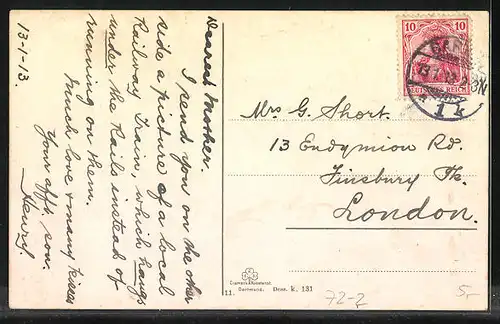 13-1-13.
Dearest Mother.
I send you on the other
side a picture of a local
Railway Train, which hangs
under the Rails instead of
running on them.
Much love & many kisses
Your afft. son.
Henry.
10 10
DEUTSCHES REICH
13.1.13
1 k
Mrs G. Short.
13 Endymion Rd.
Finsbury Pk.
London.
Dortmund. Dess. k. 131
11.
72-2
5,-